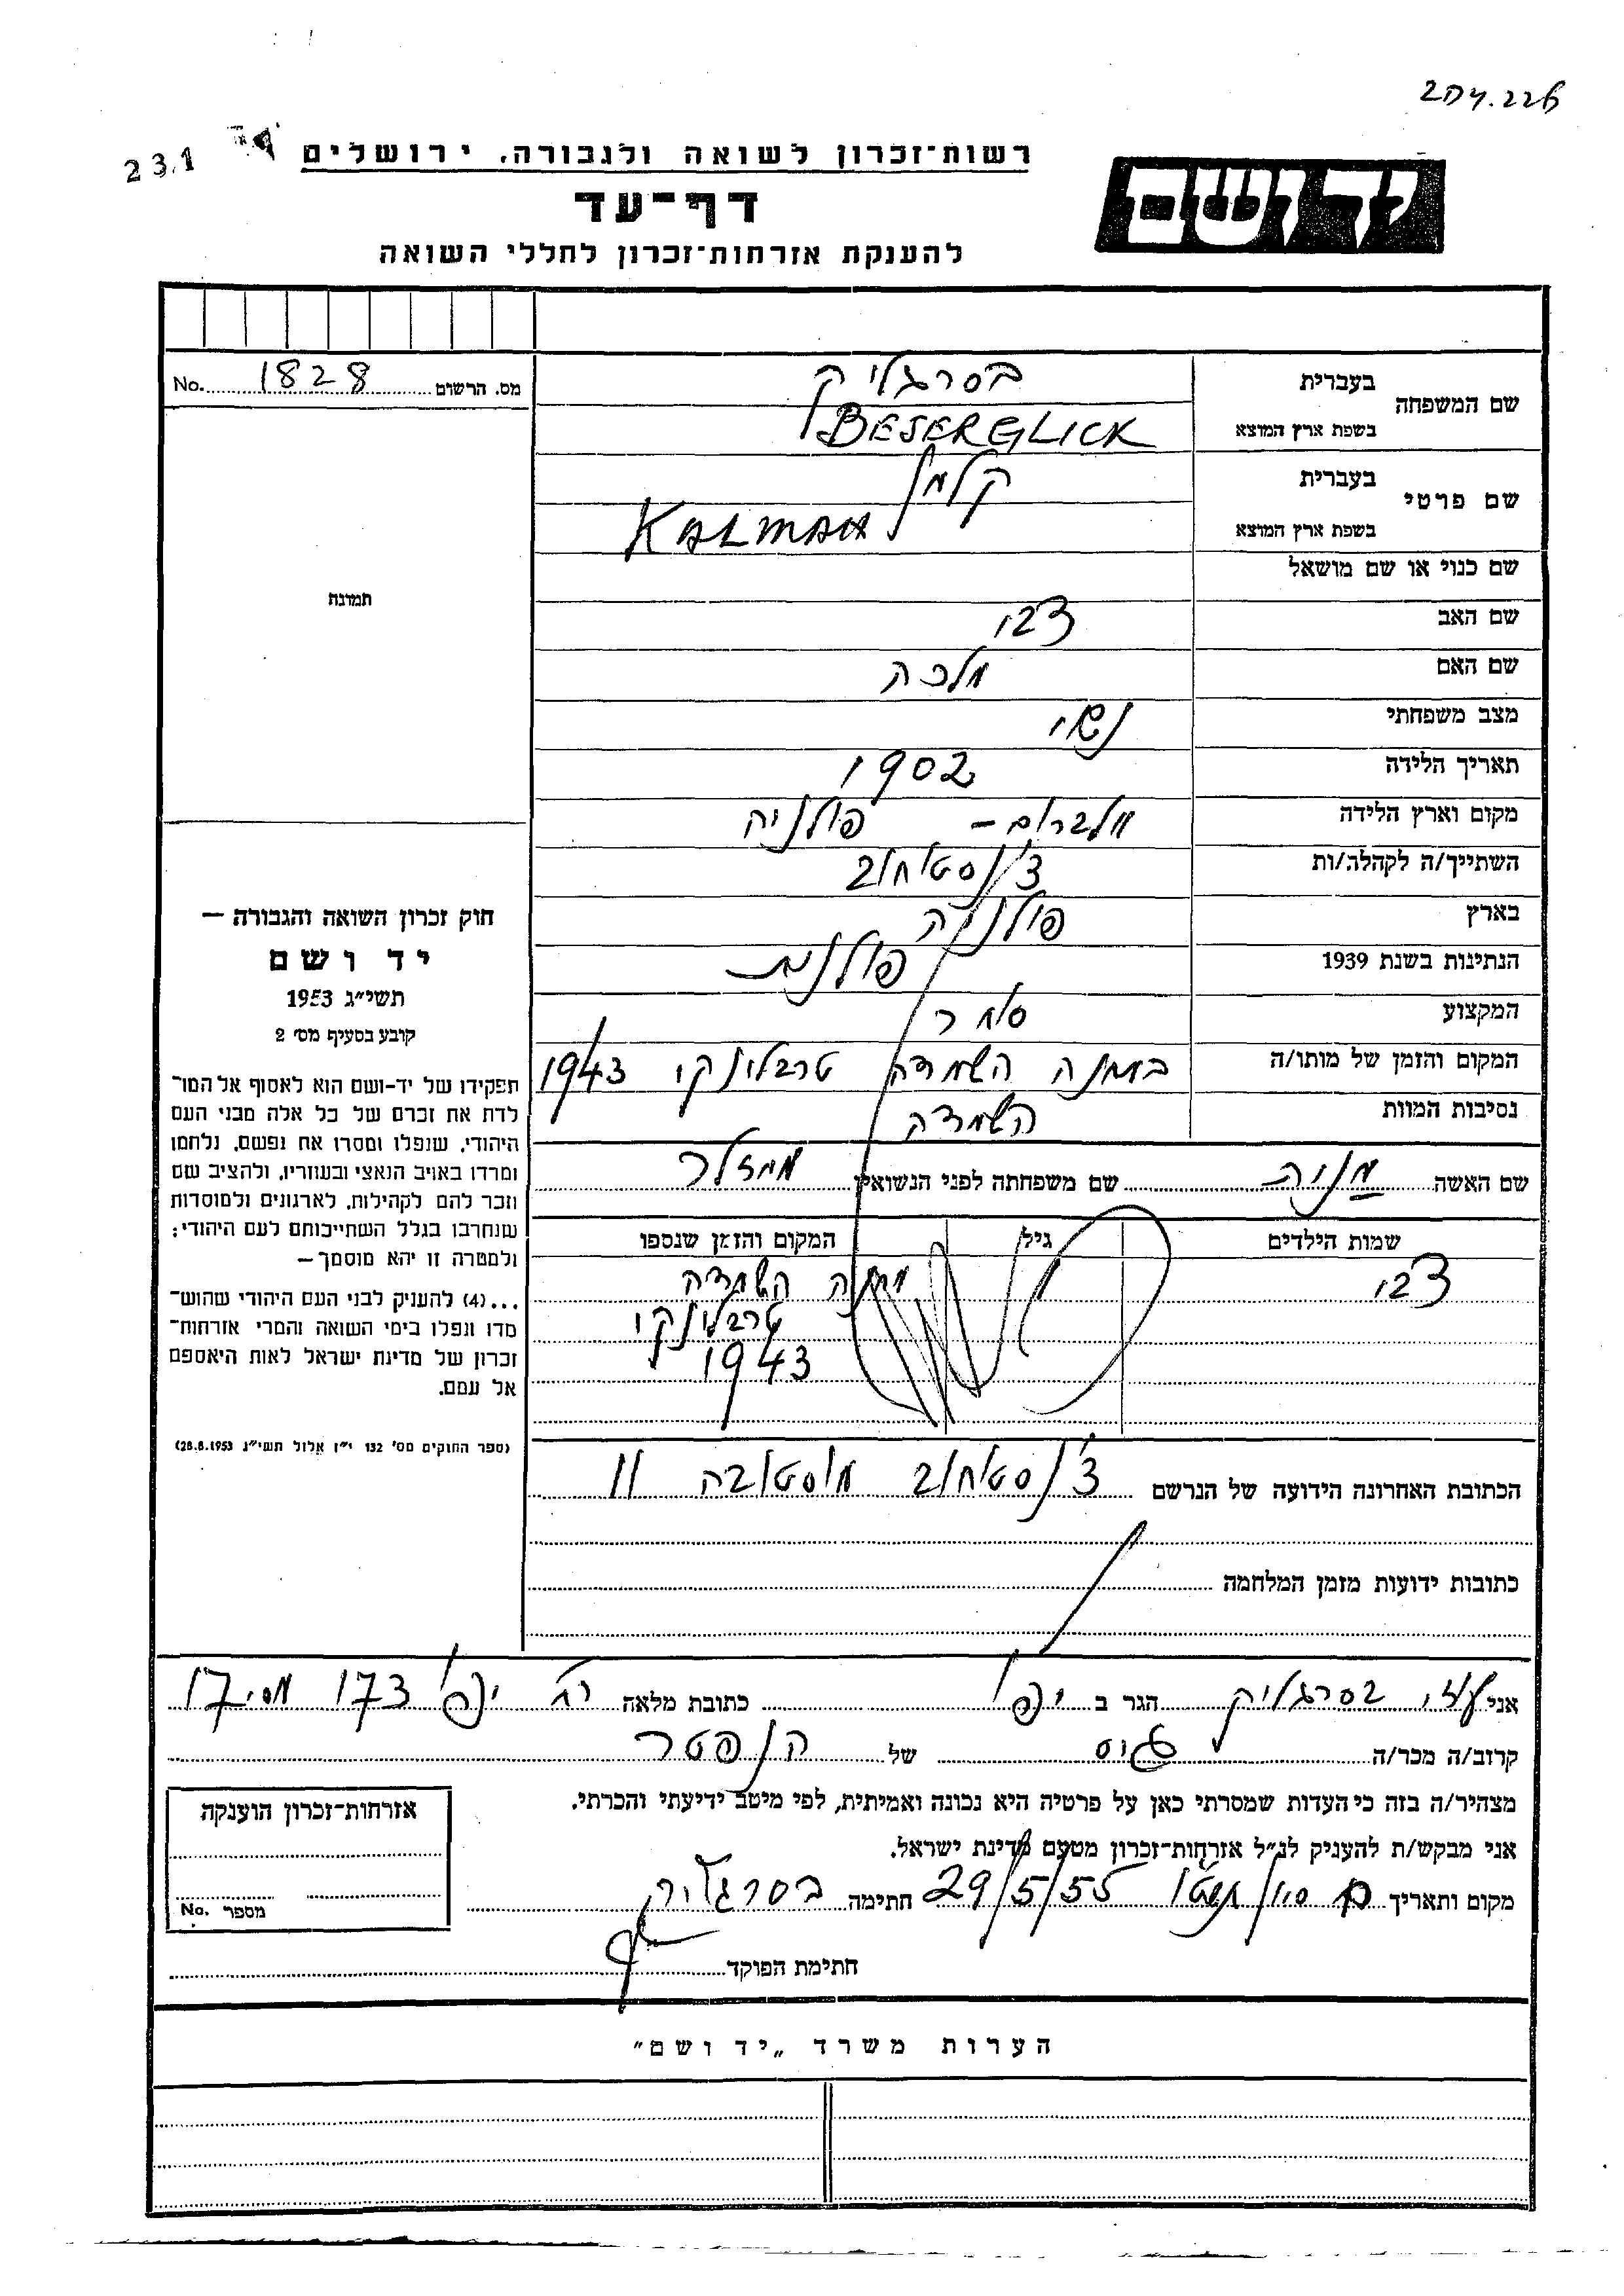 204.226
23.1
רשות־זכרון לשואה ולגבורה, ירושלים
דף־עד
להענקת אזרחות־זכרון לחללי השואה
יד ושם
מס. הרשום 1828 No.
תמונה
שם המשפחה
בעברית בסרגליק
בשפת ארץ המוצא BESERGLICK
שם פרטי
בעברית קלמן
בשפת ארץ המוצא KALMAN
שם כנוי או שם מושאל
שם האב צבי
שם האם מלכה
מצב משפחתי נשוי
תאריך הלידה 1902
מקום וארץ הלידה וולברום - פולניה
השתייך/ה לקהלה/ות צ'נסטוחוב
בארץ פולניה
הנתינות בשנת 1939 פולנית
המקצוע סוחר
המקום והזמן של מותו/ה במחנה השמדה טרבלינקי 1943
נסיבות המוות השמדה
שם האשה מניה שם משפחתה לפני הנשואין
שמות הילדים גיל המקום והזמן שנספו
צבי מחנה השמדה
טרבלינקי
1943
הכתובת האחרונה הידועה של הנרשם צ'נסטוחוב 11
כתובות ידועות מזמן המלחמה
חוק זכרון השואה והגבורה —
יד ושם
תשי״ג 1953
קובע בסעיף מס׳ 2
תפקידו של יד-ושם הוא לאסוף אל המו־
לדת את זכרם של כל אלה מבני העם
היהודי, שנפלו ומסרו את נפשם, נלחמו
ומרדו באויב הנאצי ובעוזריו, ולהציב שם
וזכר להם לקהילות, לארגונים ולמוסדות
שנחרבו בגלל השתייכותם לעם היהודי;
ולמטרה זו יהא מוסמך—
...(4) להעניק לבני העם היהודי שהוש־
מדו ונפלו בימי השואה והמרי אזרחות־
זכרון של מדינת ישראל לאות היאספם
אל עמם.
(ספר החוקים מס׳ 132 י״ז אלול תשי״ג 28.8.1953)
אני עוזי בסרגליק הגר ב יפו כתובת מלאה רח' יפו 173 מס. 17
קרוב/ה מכר/ה גיס של הנפטר
מצהיר/ה בזה כי העדות שמסרתי כאן על פרטיה היא נכונה ואמיתית, לפי מיטב ידיעתי והכרתי.
אני מבקש/ת להעניק לנ״ל אזרחות־זכרון מטעם מדינת ישראל.
מקום ותאריך 29/5/55 חתימה בסרגליק
חתימת הפוקד
אזרחות־זכרון הוענקה
מספר No.
הערות משרד „יד ושם״